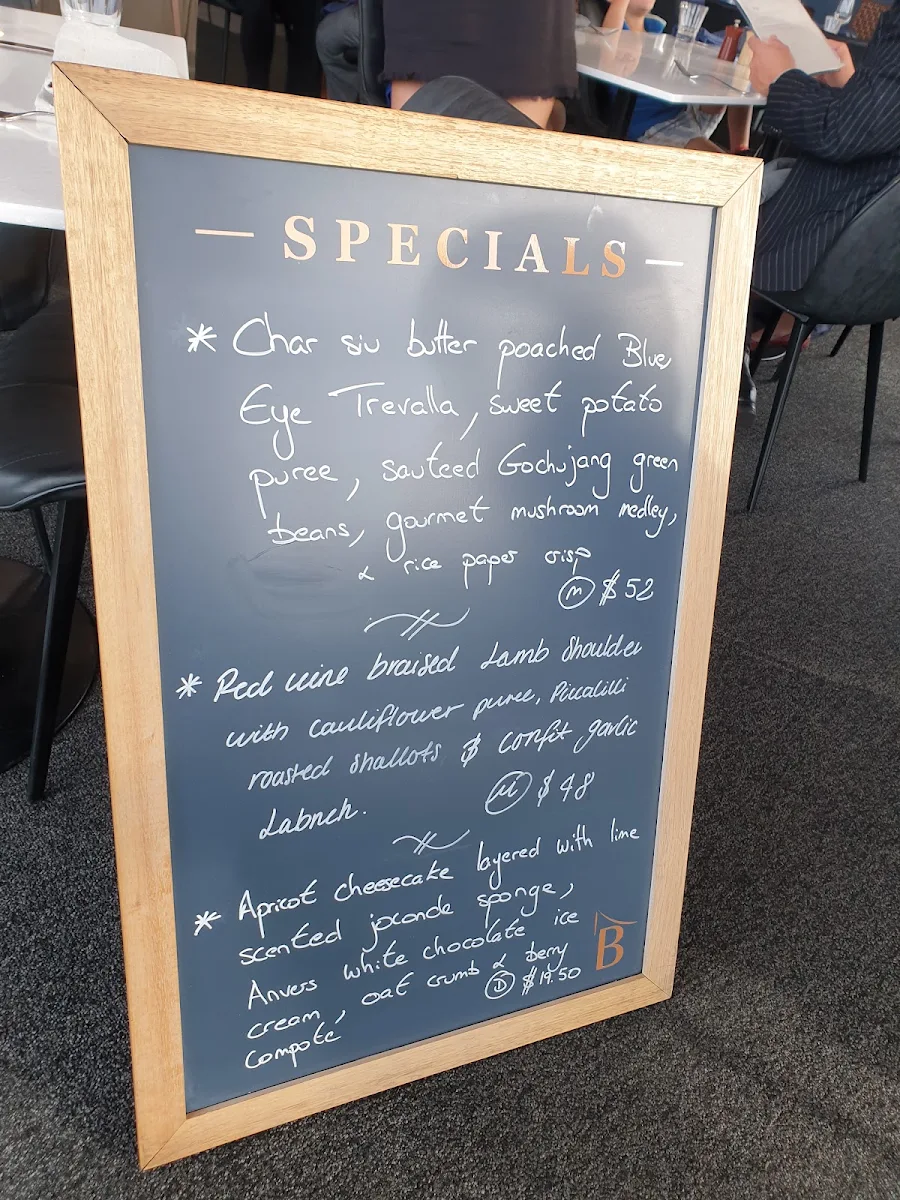 — SPECIALS —
* Char siu butter poached Blue
Eye Trevalla, sweet potato
puree, sauteed Gochujang green
beans, gourmet mushroom medley,
& rice paper crisp
M $52
* Red wine braised Lamb Shoulder
with cauliflower puree, Piccalilli
roasted shallots & confit garlic
Labneh.
M $48
* Apricot cheesecake layered with lime
scented joconde sponge,
Anvers white chocolate ice
cream, oat crumb & berry
compote
D $19.50
B